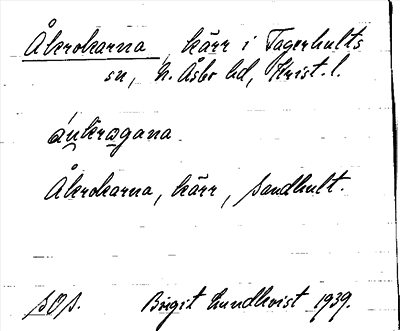 Åkrokarna, kärr i Fagerhults
sn, N. Åsbo hd, Krist. l.
áukrogana
Åkrokarna, kärr, Sandhult.
SOS. Birgit Lundkvist 1939.